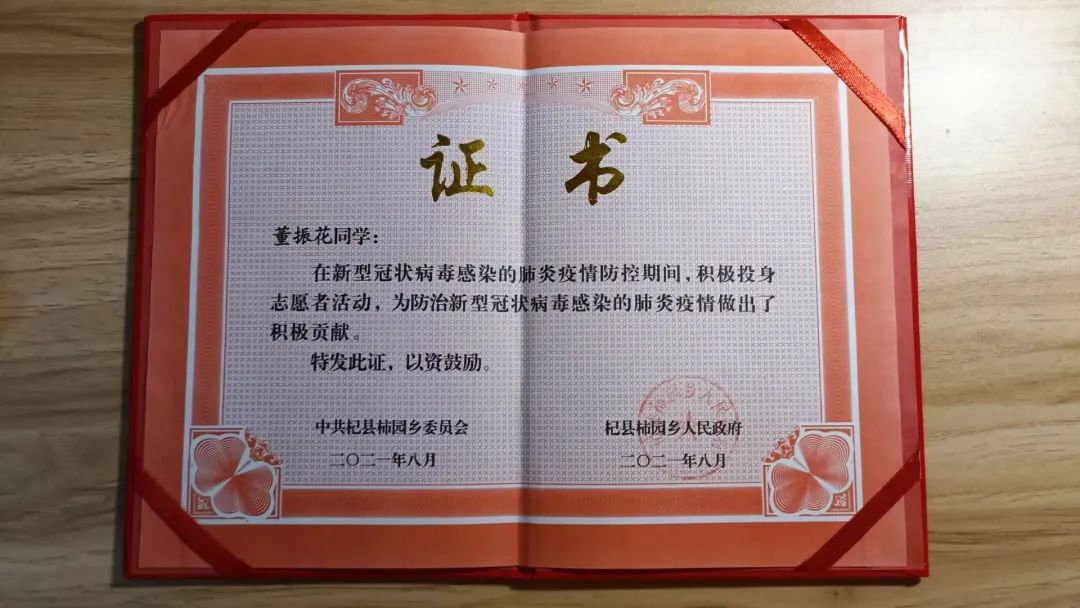 证书
董振花同学：
在新型冠状病毒感染的肺炎疫情防控期间，积极投身
志愿者活动，为防治新型冠状病毒感染的肺炎疫情做出了
积极贡献。
特发此证，以资鼓励。
中共杞县柿园乡委员会 杞县柿园乡人民政府
二〇二一年八月 二〇二一年八月